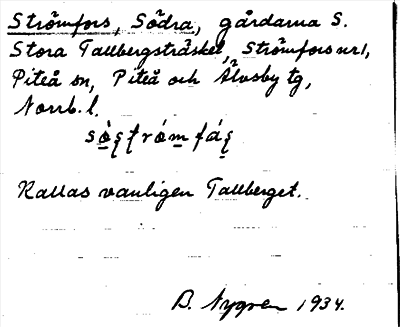 Strömfors, Södra, gårdarna S.
Stora Tallbergsträsket, Strömfors nr 1,
Piteå sn, Piteå och Älvsby tg,
Norrb. l.
Kallas vanligen Tallberget.
B. Nygren 1934.